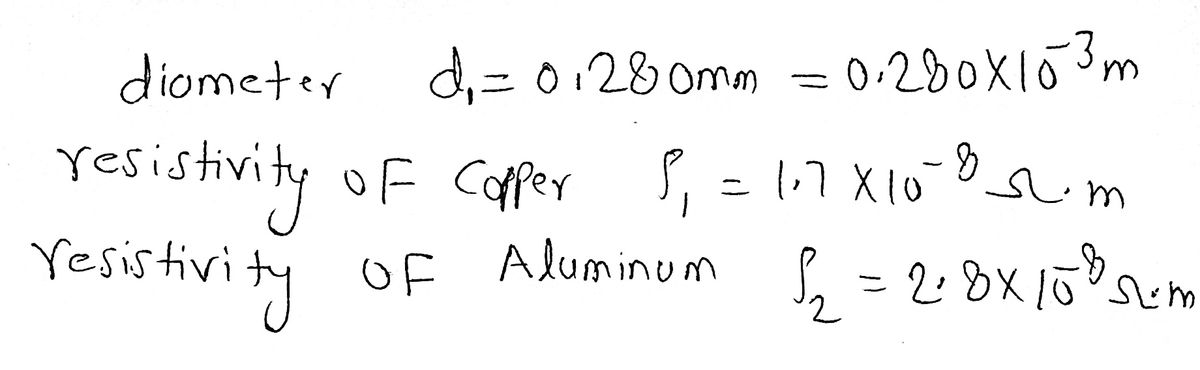 diameter d₁ = 0.280mm = 0.280X10⁻³m
resistivity OF Copper ρ₁ = 1.7 X10⁻⁸ Ω.m
resistivity OF Aluminum ρ₂ = 2.8X10⁻⁸Ω.m